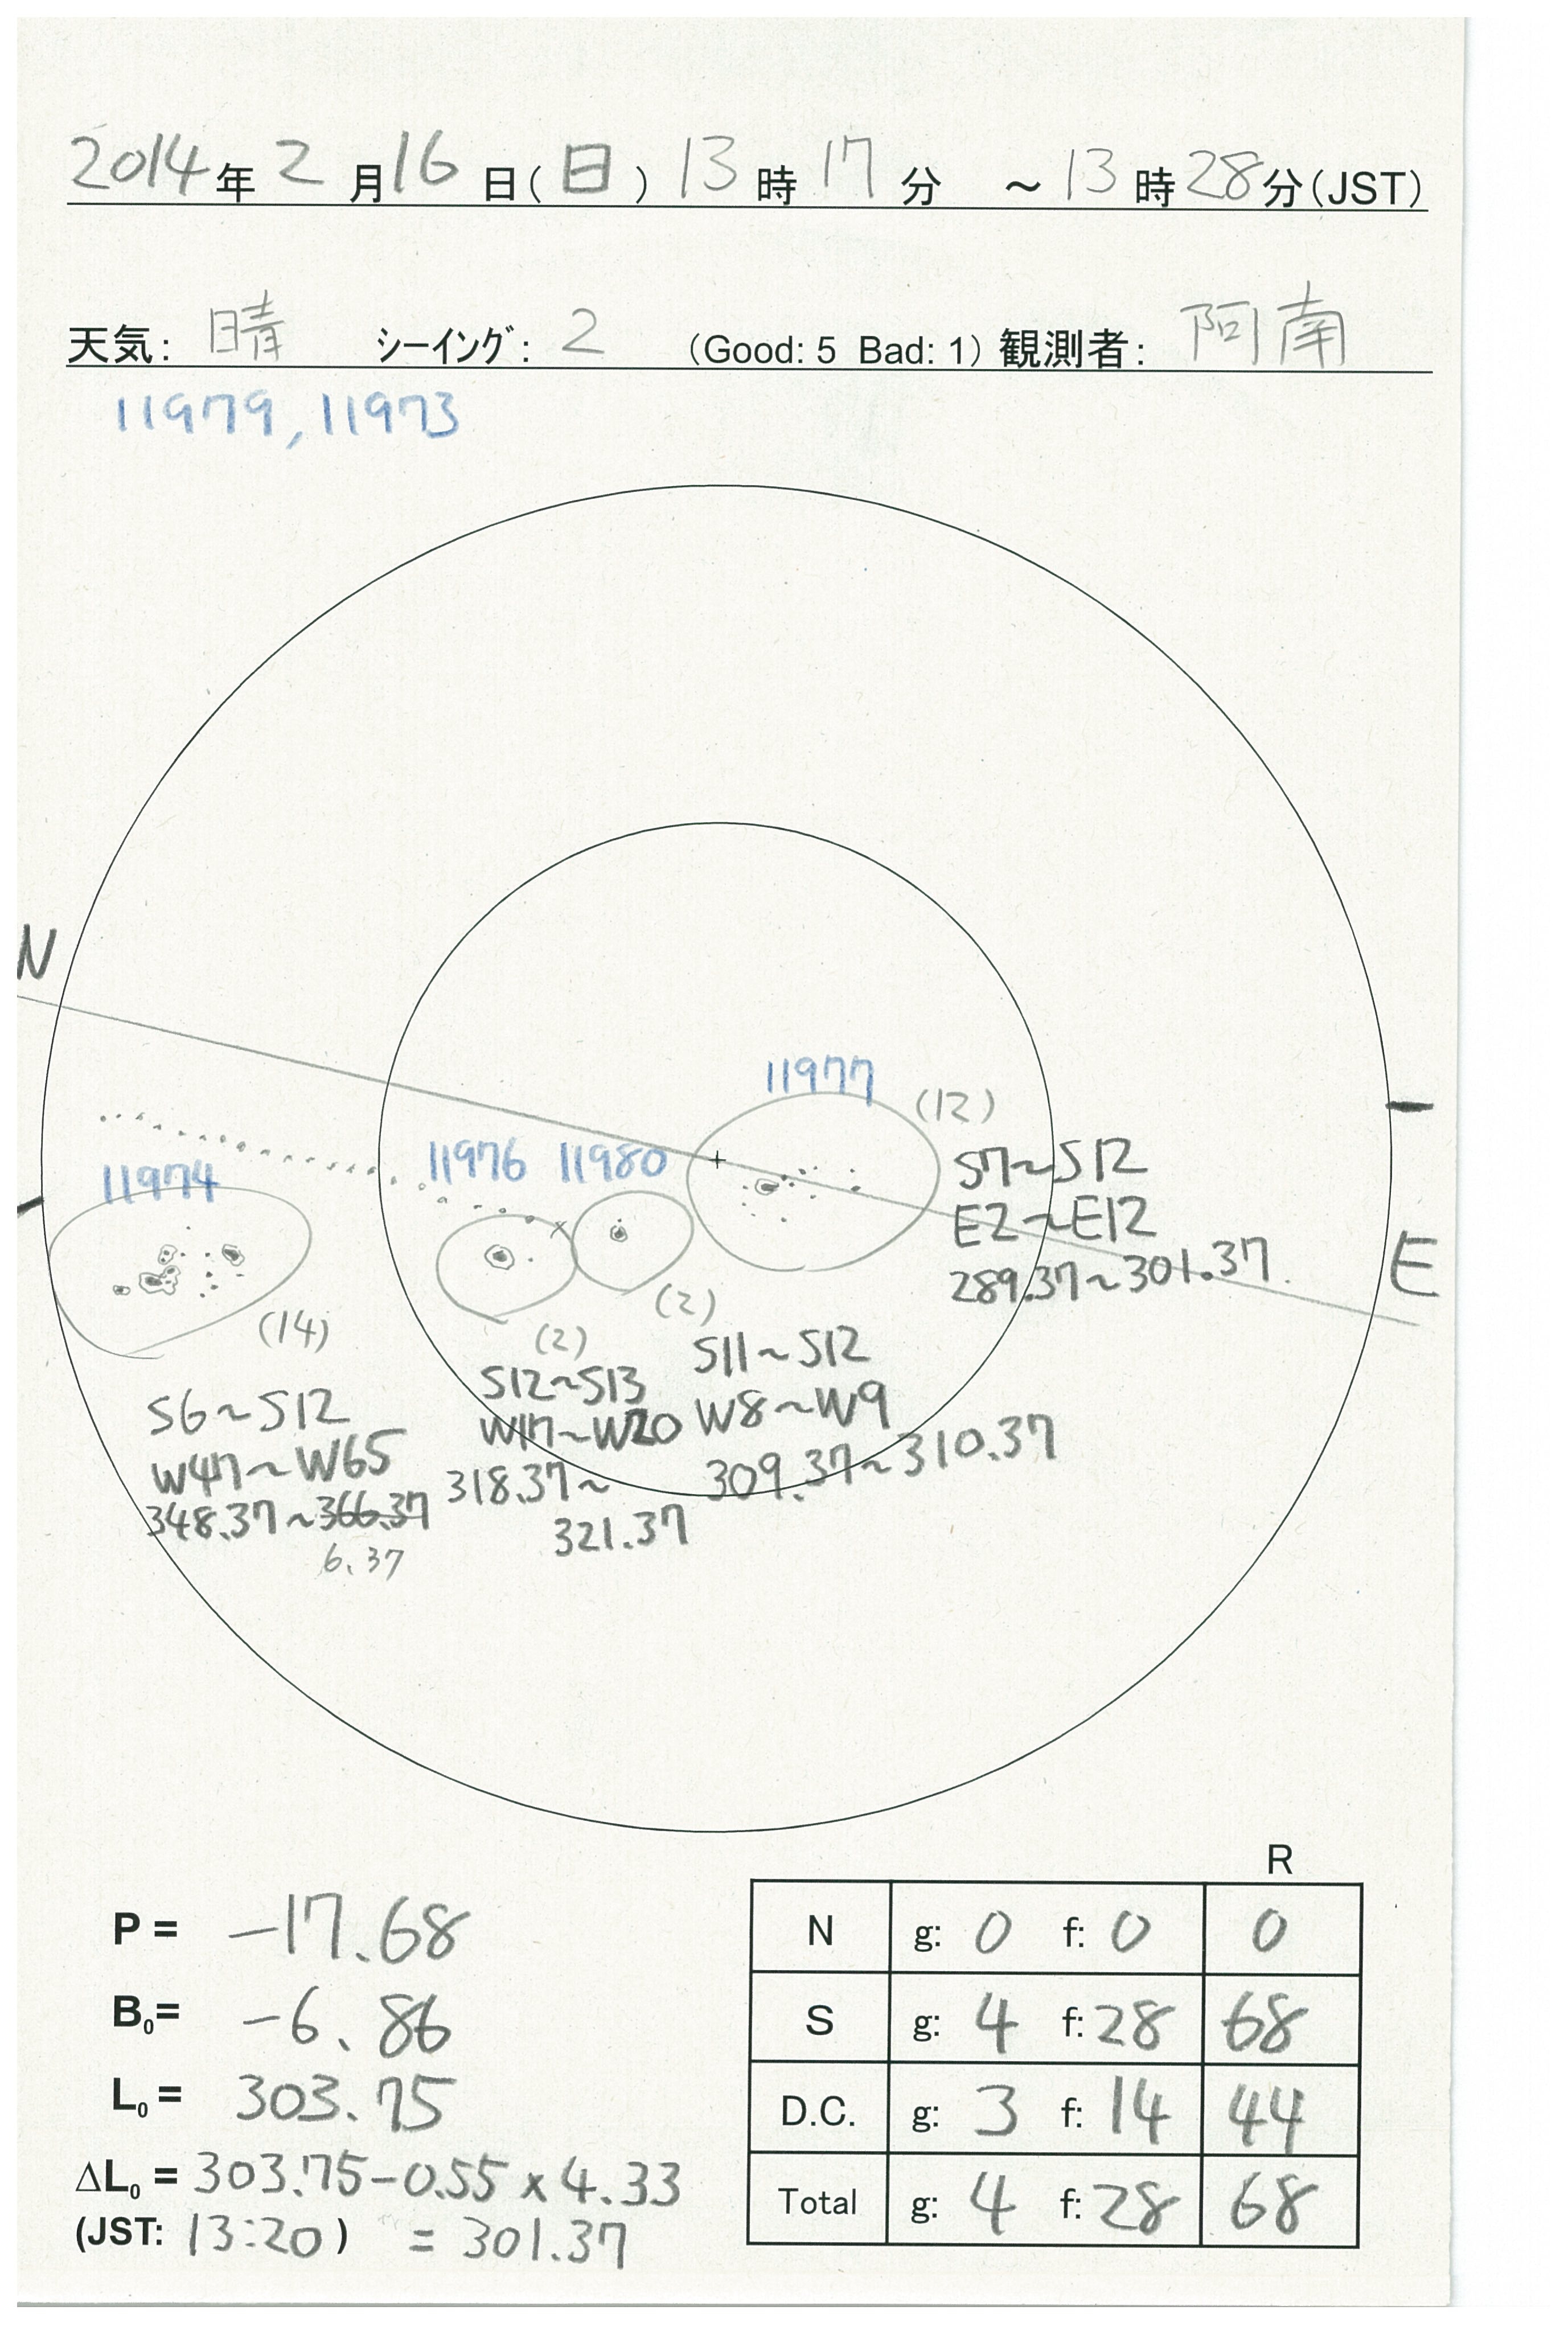 2014年 2月16日(日) 13時17分 ～13時28分(JST)
天気: 晴 シーイング: 2 (Good: 5 Bad: 1) 観測者: 阿南
11979, 11973
N
11977
(12)
S7~S12
E2~E12
289.37~301.37
E
11976
11980
11974
(14)
S6~S12
W47~W65
348.37~366.37
6.37
(2)
S12~S13
W17~W20
318.37~
321.37
(2)
S11~S12
W8~W9
309.37~310.37
P = -17.68
B₀= -6.86
L₀= 303.75
ΔL₀ = 303.75-0.55×4.33
(JST: 13:20) = 301.37
R
N g: 0 f: 0 0
S g: 4 f: 28 68
D.C. g: 3 f: 14 44
Total g: 4 f: 28 68